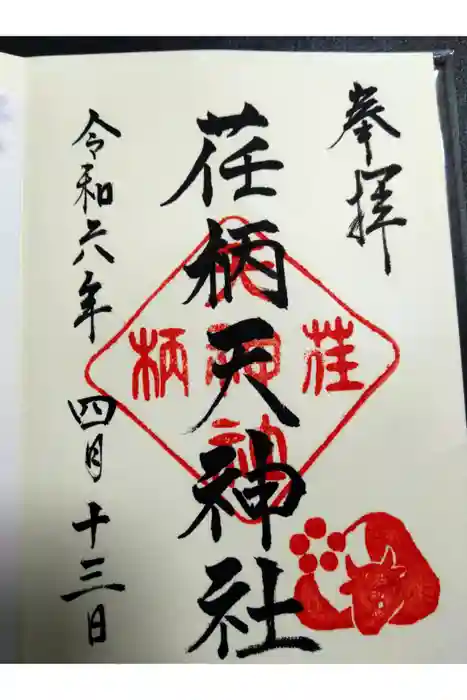 奉拝
荏柄天神社
荏
柄
令和六年 四月十三日